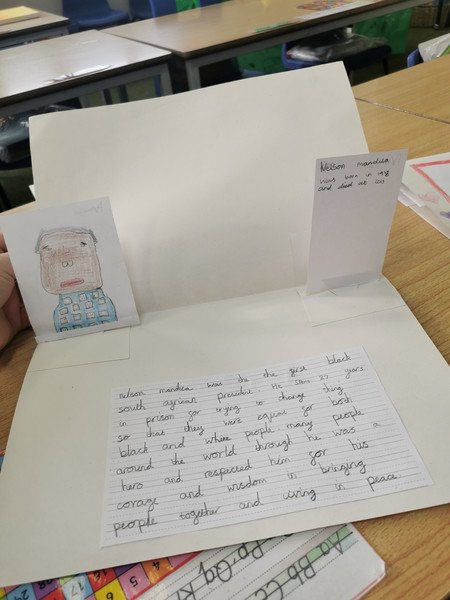 Nelson mandela
was born in 1918
and died at
Nelson mandela was the the first black
south african president. He spen 27 years
in prison for trying to change thing
so that they were equal for both
black and white people many people
around the world through he was a
hero and respected him for his
corage and wisdom in bringing
people together and living in peace
Pp Qq
Aa Bb Cc